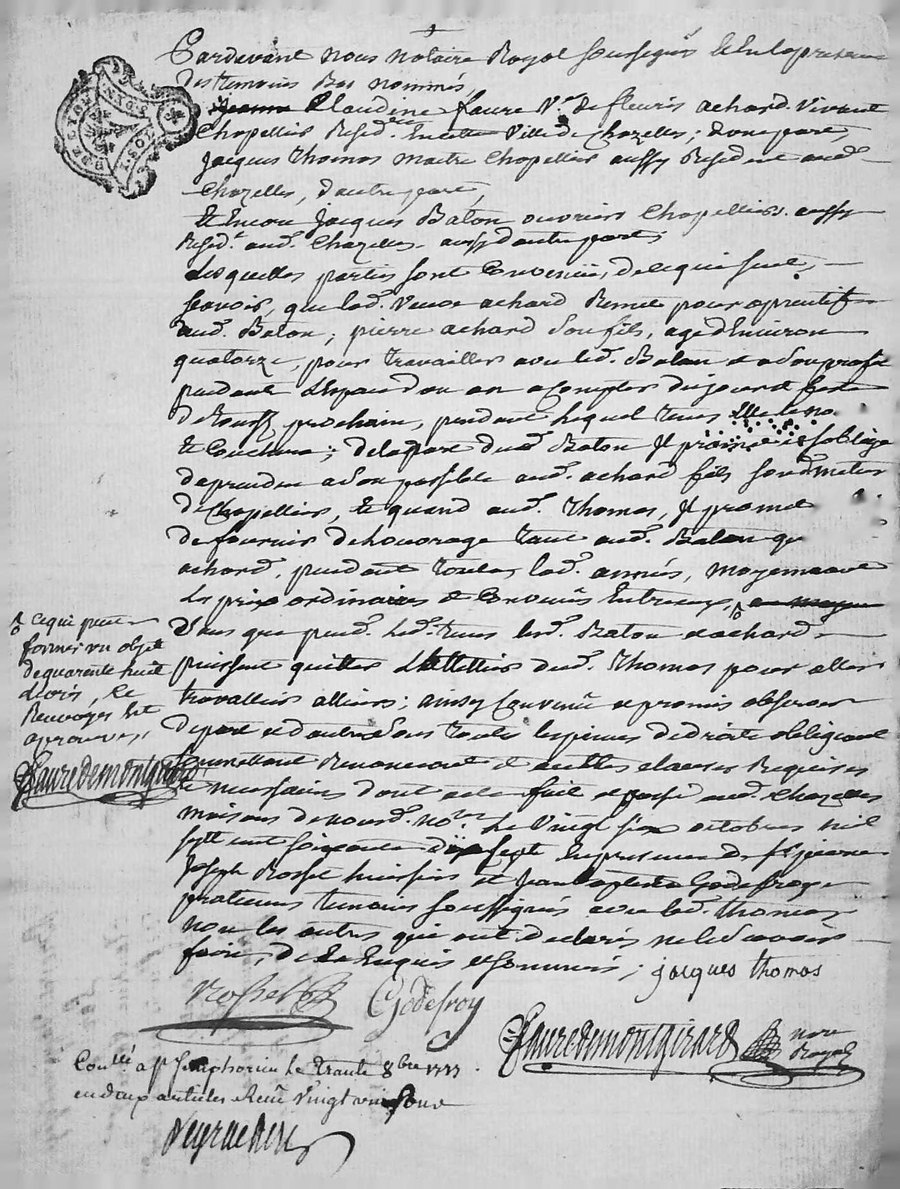 Pardevant nous notaire Royal soussigné et en la presence
des temoins bas nommés,
Claudine faure Vve de fleuris achard vivant
Chapellier Resid.te en cette Ville de Chazelles, d'une part,
jacques thomas maitre Chapellier aussy Residant aud.
Chazelles, d'autre part,
Et Encore jacques Baton ouvrier Chapellier aussy
Resid.t aud. Chazelles aussy d'autre part,
Lesquelles parties sont Convenües de ce qui suit,
scavoir, que lad. veuve achard Remet pour aprentif
aud. Baton; pierre achard son fils, agé d'Environ
quatorze, pour travailler avec led. Baton
pendant L'Espace d'un an a Compter du jour et feste
de touss.ts prochain, pendant lequel tems
; de la part dud. Baton Il promet et s'oblige
d'aprendre a son possible aud. achard fils son d. métier
de Chapellier, et quand aud. thomas, Il promet
de fournir de l'ouvrage tant aud. Baton qu'
achard, pendant toute lad. année, moyennant
Les prix ordinaires et Convenus Entreux,
sans que pend.t led. tems led. Baton et achard
puissent quitter L'attellier dud. thomas pour aller
travailler alliers; ainsy Convenu et promis observer
de part et d'autre sous toutes les peines de droit obligeant
soumettant Renoncant et autres clauses Requises
et necessaires dont acte fait et passé aud. Chazelles
maison de nousd. no.re Le Vingt six octobre mil
sept cent soixante dix sept En presence de sr jeanne
joseph Rossel huissier et jean baptiste Godefroy
praticiens temoins soussignés avec led. thomas
non les autres qui ont declarés ne le scavoir
faire, de ce Enquis et sommés; jacques thomas
Rossel
Godefroy
fauredemontgirard nore Royal
Con.llé a St Simphorien le trante 8bre 1777.
en deux articles Recu Vingt
ce qui peut
former un objet
de quarente huit
Livres, Le
Renvoyes Est
aprouvé,
fauredemontgirard